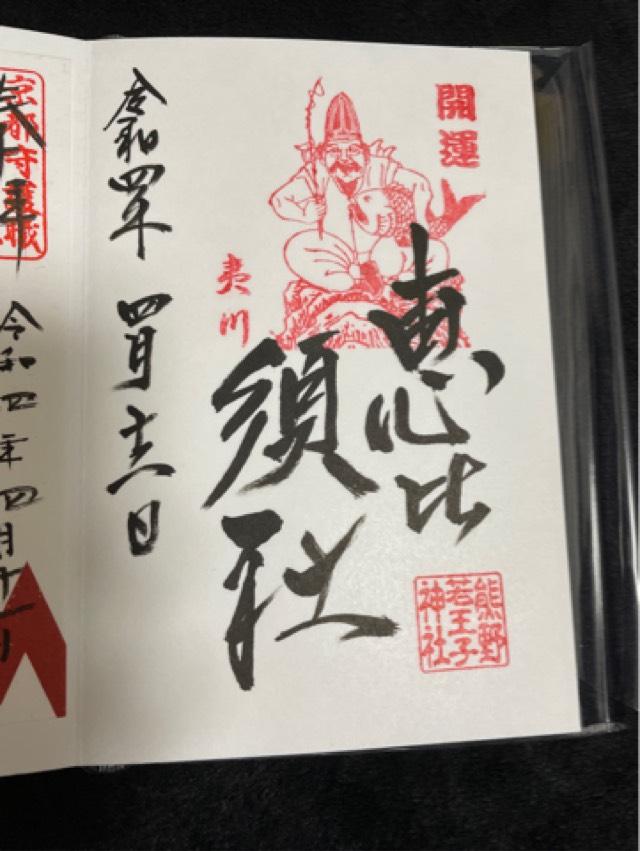 開運
恵比
須社
夷川
熊野
若王子
神社
令和四年 四月十六日
京都守護職
令和四年四月十一日